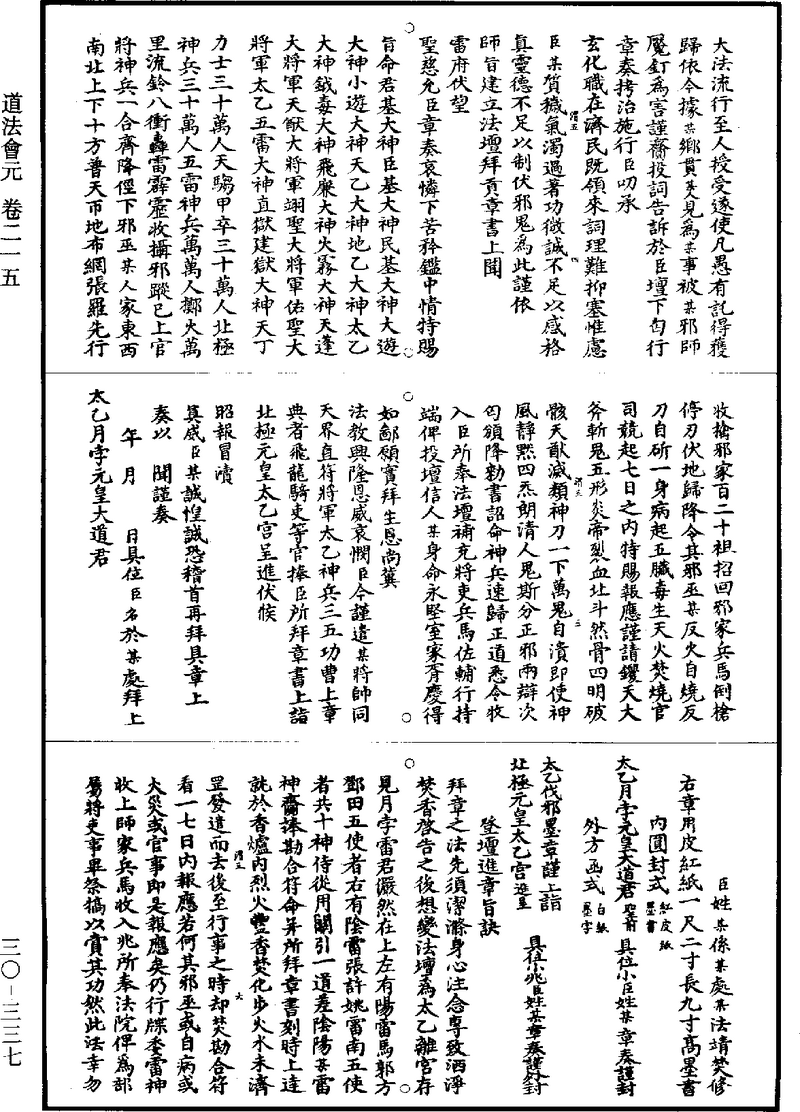 道法會元　卷二一五
三〇―三三七
大法流行至人授受遂使凡愚有託得獲
歸依今據某鄉貫某見為某事被某邪師
魘釘為害謹齋投詞告訴於臣壇下匄行
章奏拷治施行臣叨承
玄化職在濟民既領來詞理難抑塞惟慮
臣某質穢氣濁過著功微誠不足以感格
真靈德不足以制伏邪鬼為此謹依
師旨建立法壇拜貢章書上聞
雷府伏望
聖慈允臣章奏哀憐下苦矜鑑中情特賜
旨命君基大神臣基大神民基大神大遊
大神小遊大神天乙大神地乙大神太乙
大神鉞毒大神飛廉大神火霧大神天蓬
大將軍天猷大將軍翊聖大將軍佑聖大
將軍太乙五雷大神直獄建獄大神天丁
力士三十萬人天騶甲卒三十萬人北極
神兵三十萬人五雷神兵萬萬人擲火萬
里流鈴八衝轟雷霹靂收攝邪蹤已上官
將神兵一合齊降徑下邪巫某人家東西
南北上下十方普天帀地布網張羅先行
收搶邪家百二十祖招回邪家兵馬倒槍
停刃伏地歸降令其邪巫某反火自燒反
刀自斫一身病起五臟毒生天火焚燒官
司競起七日之內特賜報應謹請钁天大
斧斬鬼五形炎帝裂血北斗然骨四明破
骸天猷滅類神刀一下萬鬼自潰即使神
風靜默四炁朗清人鬼斯分正邪兩辯次
匄頒降勑書詔命神兵速歸正道悉令收
入臣所奉法壇補充將吏兵馬佐輔行持
端俾投壇信人某身命永堅室家胥慶得
如鄙願實拜生恩尚冀
法教興隆恩威哀憫臣今謹遣某將帥同
天界直符將軍太乙神兵三五功曹上章
典者飛龍騎吏等官捧臣所拜章書上詣
北極元皇太乙宮呈進伏候
昭報冒瀆
真威臣某誠惶誠恐稽首再拜具章上
奏以　聞謹奏
年　月　日具位臣名於某處拜上
太乙月孛元皇大道君
臣姓某係某處某法靖焚修
右章用皮紅紙一尺二寸長九寸高墨書
內圓封式　紅皮紙墨書
太乙月孛元皇大道君聖前　具位小臣姓某章奏謹封
外方函式　白紙墨字
太乙伐邪墨章謹上詣
北極元皇太乙宮進呈　具位小兆臣姓某章奏謹外封
登壇進章旨訣
拜章之法先須潔滌身心注念專致洒淨
焚香啓告之後想變法壇為太乙離宮存
見月孛雷君儼然在上左有陽雷馬郭方
鄧田五使者右有陰雷張許姚雷南五使
者共十神侍從用關引一道差陰陽某雷
神齎捧勘合符命并所拜章書刻時上達
訖於香爐內烈火豐香焚化步火水未濟
罡發遣而去後至行事之時却焚勘合符
看一七日內報應若何其邪巫或自病或
火災或官事即是報應矣仍行牒委雷神
收上師家兵馬收入兆所奉法院俾為部
屬將吏事畢祭犒以賞其功然此法幸勿